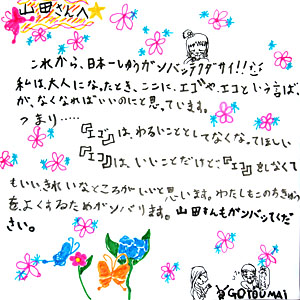 山田さんへ
これから、日本一しゅうガンバッテクダサイ!!
私は、大人になったとき、ここに、エゴや、エコという言ば、
が、なくなればいいのにと思っています。
つまり……
『エゴ』は、わるいこととしてなくなってほしい
『エコ』は、いいことだけど、『エコ』をしなくて
もいい、きれいなところがいいと思います。わたしもこのちきゅう
をよくするためガンバります。山田さんもガンバッてくだ
さい。
GOTOUMAI